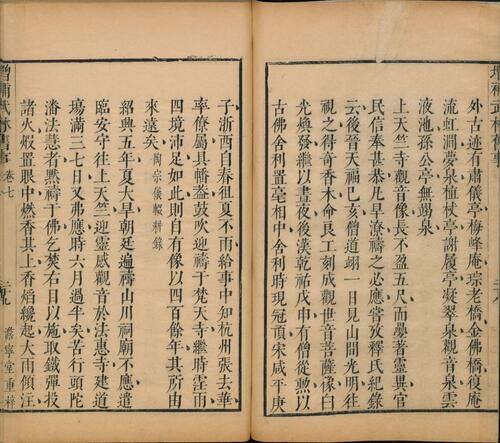 增補武林舊事
外古迹有肅儀亭梅峰庵琮老橋金佛橋復庵
流虹澗夢泉植杖亭謝履亭凝翠泉觀音泉雲
液池孫公亭無竭泉
上天竺寺觀音像長不盈五尺而夢著靈異官
民信奉甚恭凡旱潦禱之必應嘗攷釋氏紀錄
云後晉天福己亥僧道翊一日見山間光明往
視之得奇香木命良工刻成觀世音菩薩像白
光煥發繼以晝夜後漢乾祐戊申有僧從勲以
古佛舍利置毫相中舍利時現冠頂宋咸平庚
子浙西自春徂夏不雨給事中知杭州張去華
率僚屬具幡蓋鼓吹迎禱于梵天寺繼時霔雨
四境沛足如此則自有像以四百餘年其所由
來遠矣 陶宗儀輟耕錄
紹興五年夏大旱朝廷遍禱山川祠廟不應遣
臨安守往上天竺迎靈感觀音於法惠寺建道
場滿三七日又弗應時六月過半矣苦行頭陀
潘法慧者黙禱于佛乞焚右目以施取鐵彈投
諸火煅置眼中燃香其上香熖纔起大雨傾注
增補武林舊事 卷七
嘉寧堂重梓